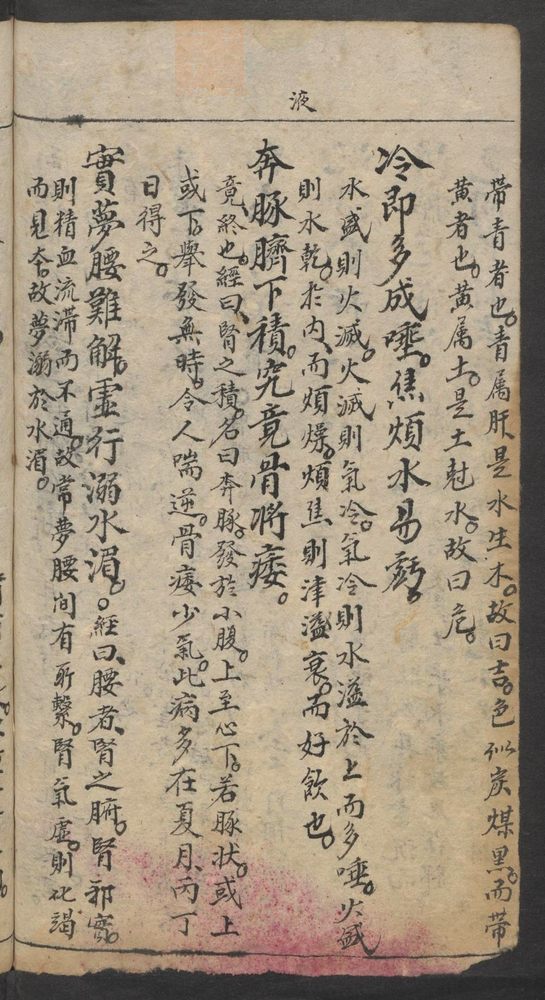 液
帶青者也。青属肝、是水生木。故曰吉。色似炭煤黑。而帶
黄者也。黄属土。是土尅水。故曰危。
冷即多成唾。焦煩水易虧。
水盛則火滅。火滅則氣冷。氣冷則水溢於上而多唾。火盛
則水乾。於内、而煩燥。煩焦則津溢衰。而好飲也。
奔豚臍下積。究竟骨將痿。
竟、終也。經曰、腎之積。名曰奔豚。發於小腹。上至心下。若豚状。或上
或下。舉發無時。令人喘逆。骨痿少氣。此病多在夏月、丙丁
日得之。
實夢腰難解。虚行溺水湄。。經曰、腰者、腎之腑。腎邪實。
則精血流滞而不通。故常夢腰间有所繫。腎氣虚。則化竭
而見夲。故夢溺於水湄。